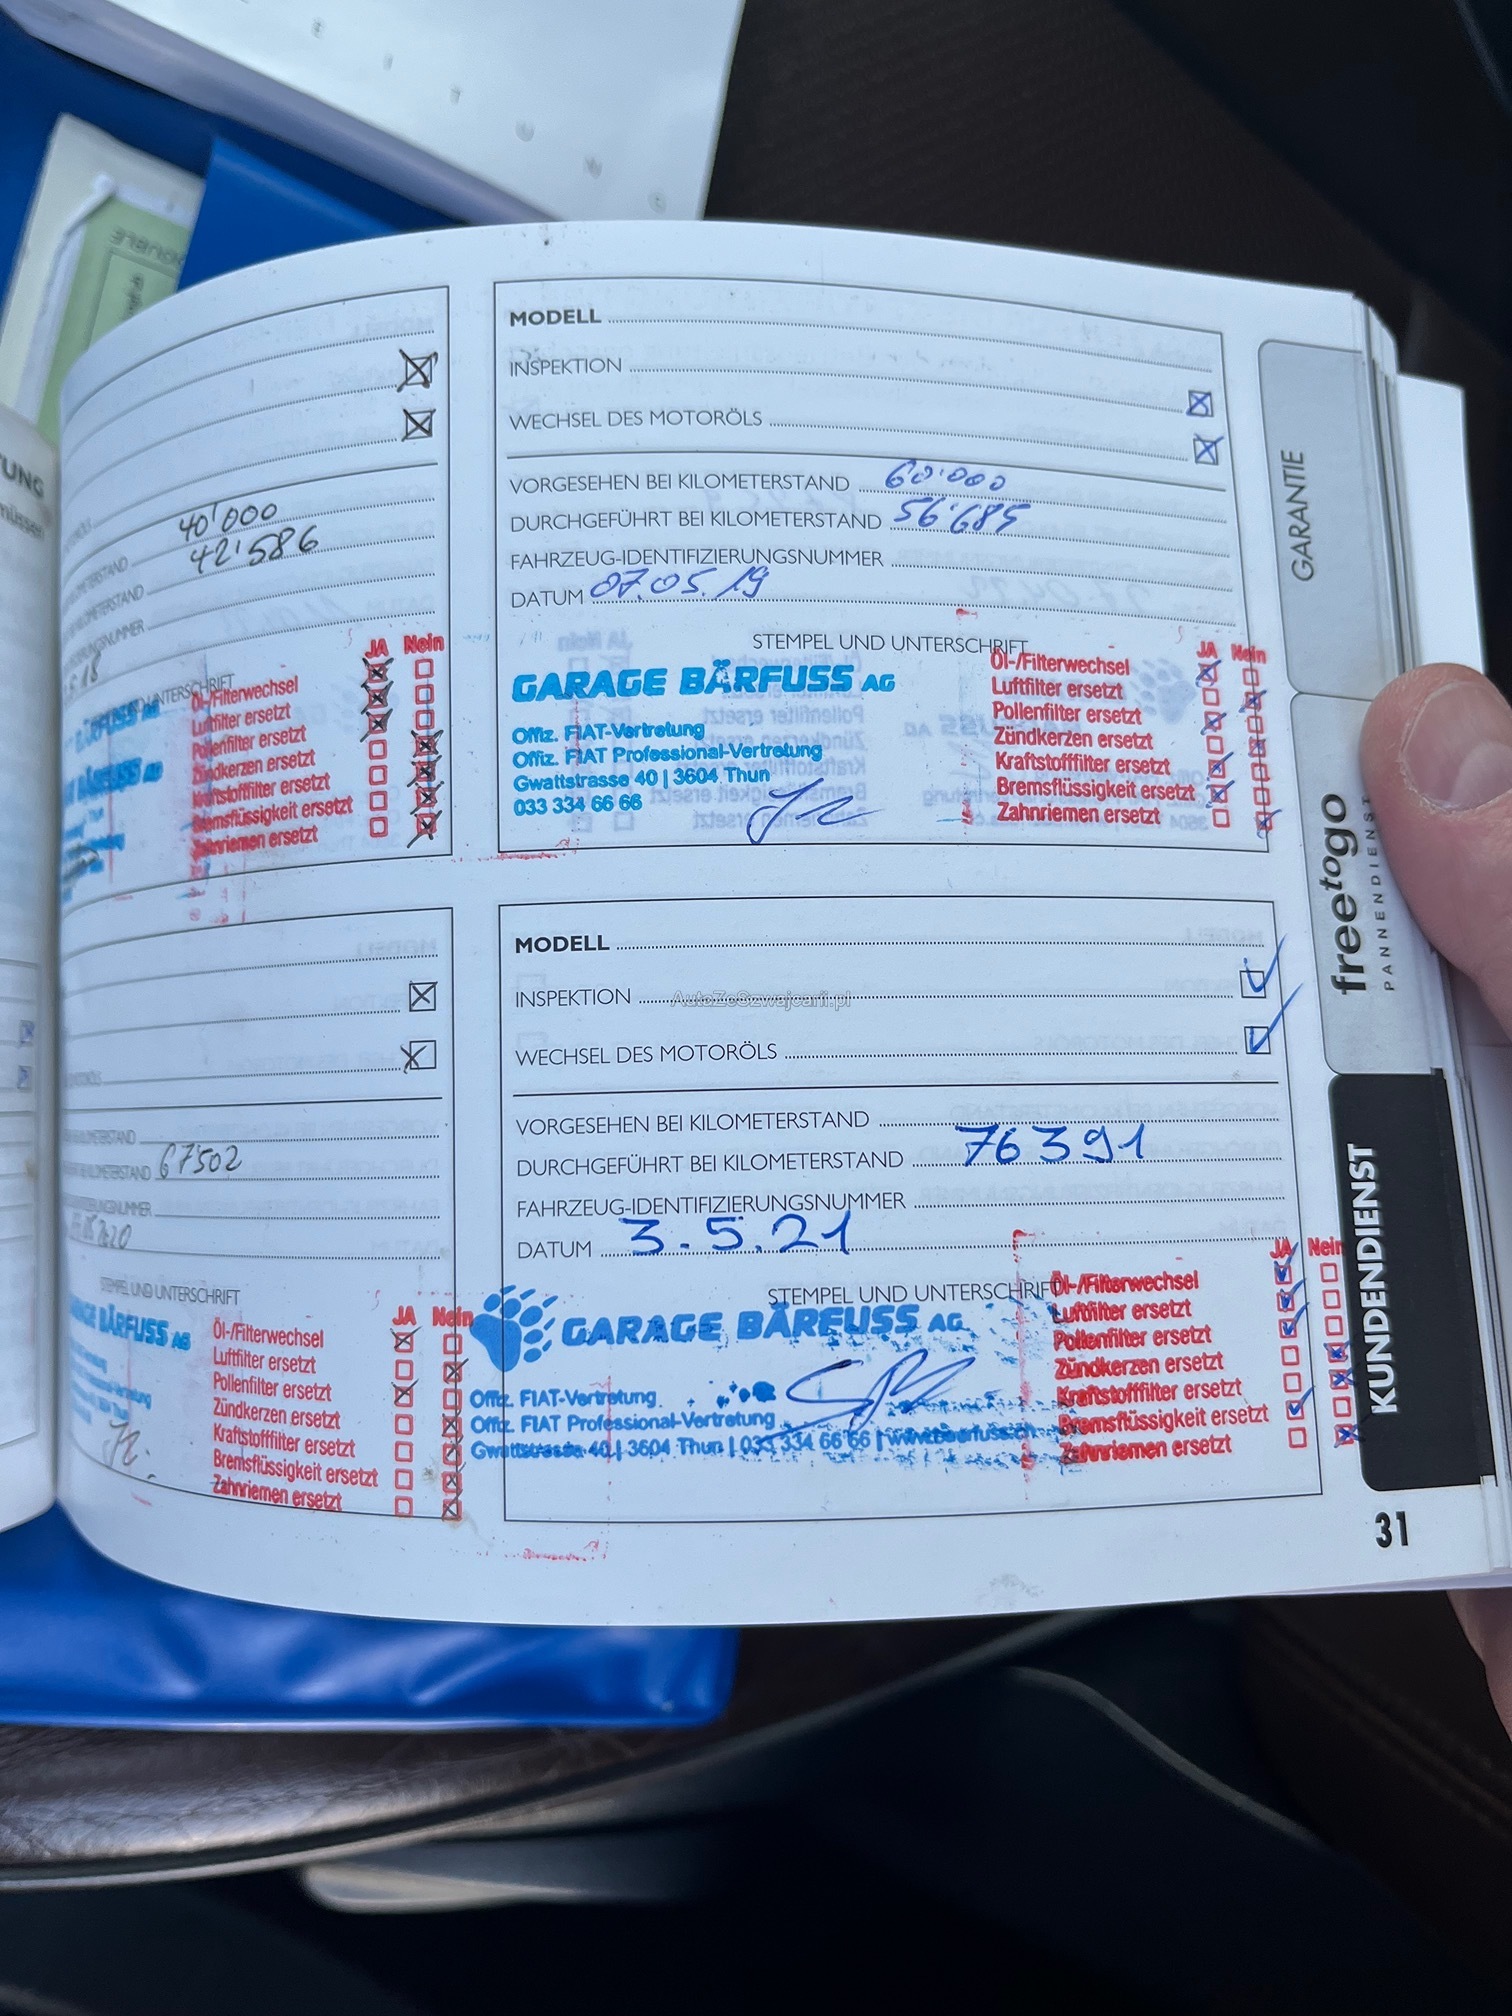 40'000
42'586
UNTERSCHRIFT
JA Nein
Öl-/Filterwechsel
Luftfilter ersetzt
Pollenfilter ersetzt
Zündkerzen ersetzt
Kraftstofffilter ersetzt
Bremsflüssigkeit ersetzt
Zahnriemen ersetzt
MODELL
INSPEKTION
WECHSEL DES MOTORÖLS
VORGESEHEN BEI KILOMETERSTAND 60'000
DURCHGEFÜHRT BEI KILOMETERSTAND 56'685
FAHRZEUG-IDENTIFIZIERUNGSNUMMER
DATUM 07.05.19
STEMPEL UND UNTERSCHRIFT
GARAGE BÄRFUSS AG
Offiz. FIAT-Vertretung
Offiz. FIAT Professional-Vertretung
Gwattstrasse 40 | 3604 Thun
033 334 66 66
JA Nein
Öl-/Filterwechsel
Luftfilter ersetzt
Pollenfilter ersetzt
Zündkerzen ersetzt
Kraftstofffilter ersetzt
Bremsflüssigkeit ersetzt
Zahnriemen ersetzt
KILOMETERSTAND 67502
STEMPEL UND UNTERSCHRIFT
BÄRFUSS AG
JA Nein
Öl-/Filterwechsel
Luftfilter ersetzt
Pollenfilter ersetzt
Zündkerzen ersetzt
Kraftstofffilter ersetzt
Bremsflüssigkeit ersetzt
Zahnriemen ersetzt
MODELL
INSPEKTION
AutoZeSzwajcarii.pl
WECHSEL DES MOTORÖLS
VORGESEHEN BEI KILOMETERSTAND
DURCHGEFÜHRT BEI KILOMETERSTAND 76391
FAHRZEUG-IDENTIFIZIERUNGSNUMMER
DATUM 3.5.21
STEMPEL UND UNTERSCHRIFT
GARAGE BÄRFUSS AG
Offiz. FIAT-Vertretung
Offiz. FIAT Professional-Vertretung
Gwattstrasse 40 | 3604 Thun | 033 334 66 66 |
JA Nein
Öl-/Filterwechsel
Luftfilter ersetzt
Pollenfilter ersetzt
Zündkerzen ersetzt
Kraftstofffilter ersetzt
Bremsflüssigkeit ersetzt
Zahnriemen ersetzt
GARANTIE
freetogo
PANNENDIENST
KUNDENDIENST
31